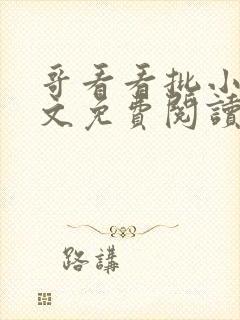 哥看看批小
文免費閱讀
路講